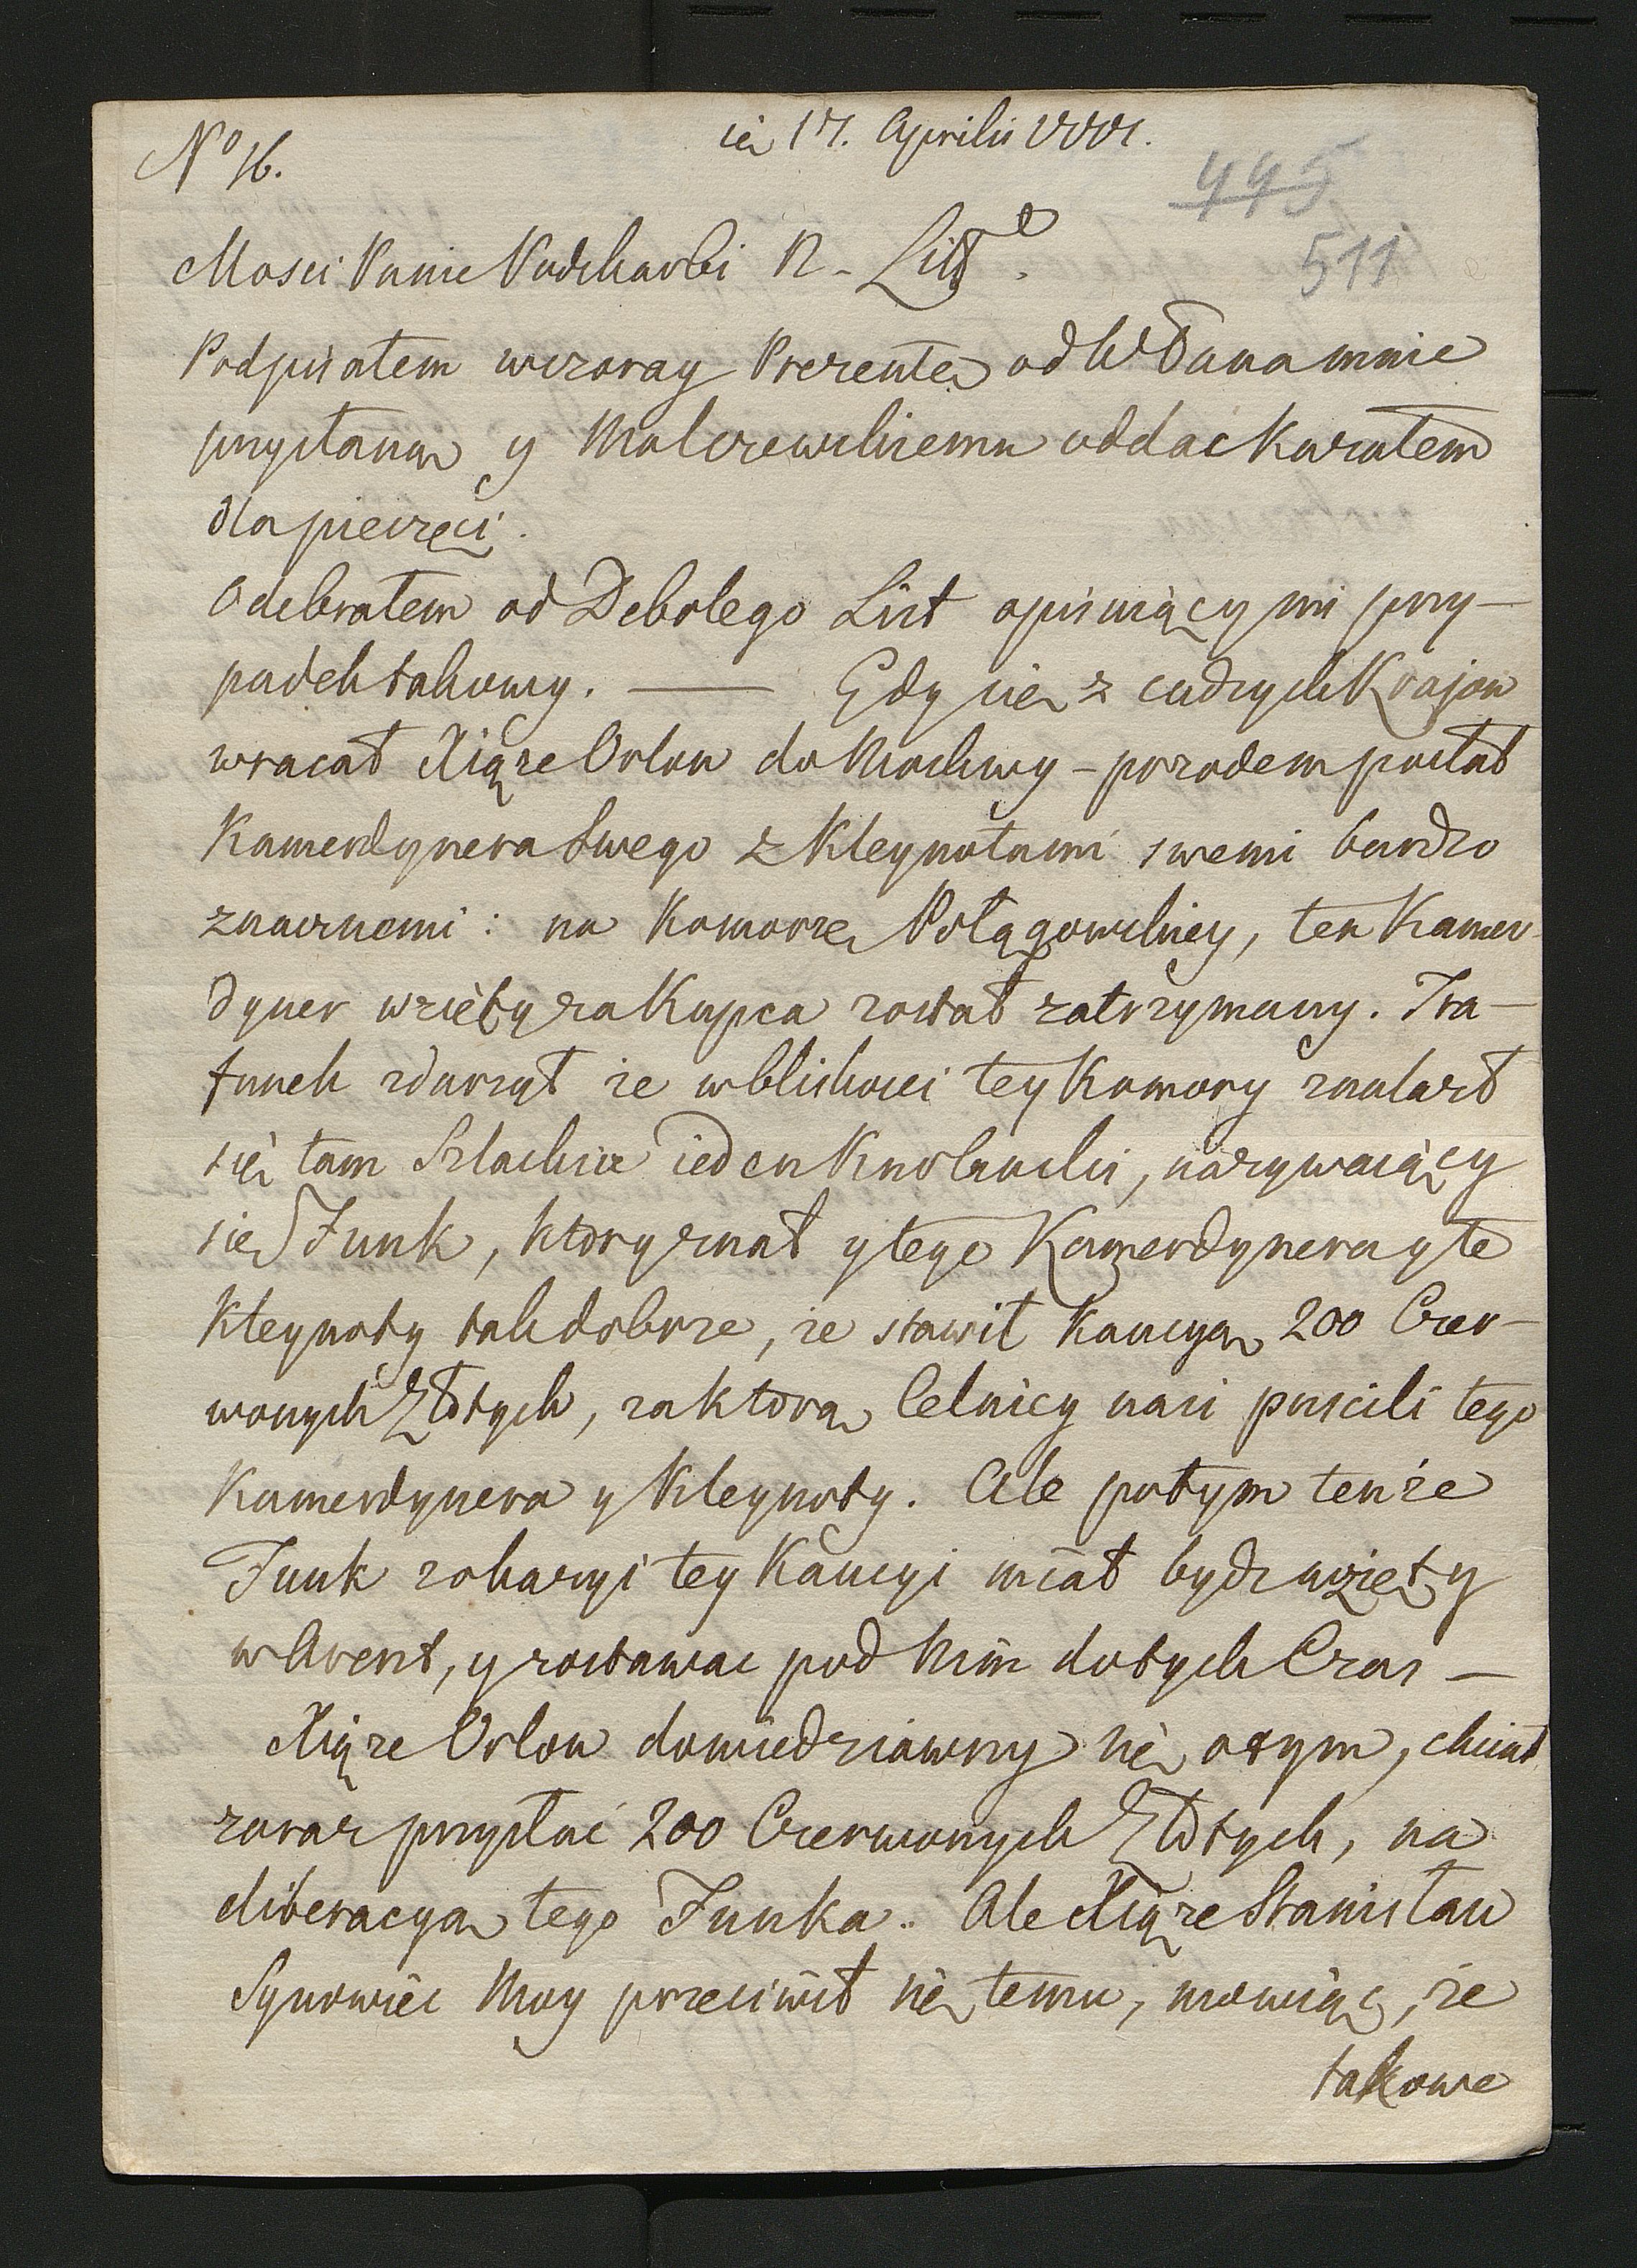 N° 16.
17. Aprilis
445
511
Mosci Panie Podskarbi N. Litt
Podpisałem wczoray Prezentę od WPana mnie
przysłaną y Malczewskiemu oddać kazałem
dla pieczęci.
Odebrałem od Debolego List opisuiący mi przy-
padek takowy. — Gdy się z cudzych Krajow
wracał Xiąże Orlow do Moskwy – przodem posłał
Kamerdynera Swego z Kleynotami swemi bardzo
znacznemi: na Komorze Połągowskiey, ten Kamer
dyner wzięty za Kupca został zatrzymany. Tra-
funek zdarzył że w bliskości tey Komory znalazł
się tam Szlachcic ieden Kurlandski, nazywaiący
się Funk, ktory znał y tego Kamerdynera y te
Kleynoty tak dobrze, że stawił Kaucyą 200 Czer-
wonych Złotych, za ktorą Celnicy nasi puscili tego
Kamerdynera y Kleynoty. Ale potym tenże
Funk z okazyi tey Kaucyi miał bydz wzięty
w Areszt, y zostawac pod Nim dotych Czas —
Xiąże Orlow dowiedziawszy się o tym, chciał
zaraz przysłać 200 Czerwonych Złotych, na
eliberacyą tego Funka. Ale Xiąże Stanisław
Synowiec Moy przeciwił się temu, mowiąc, że
takowe